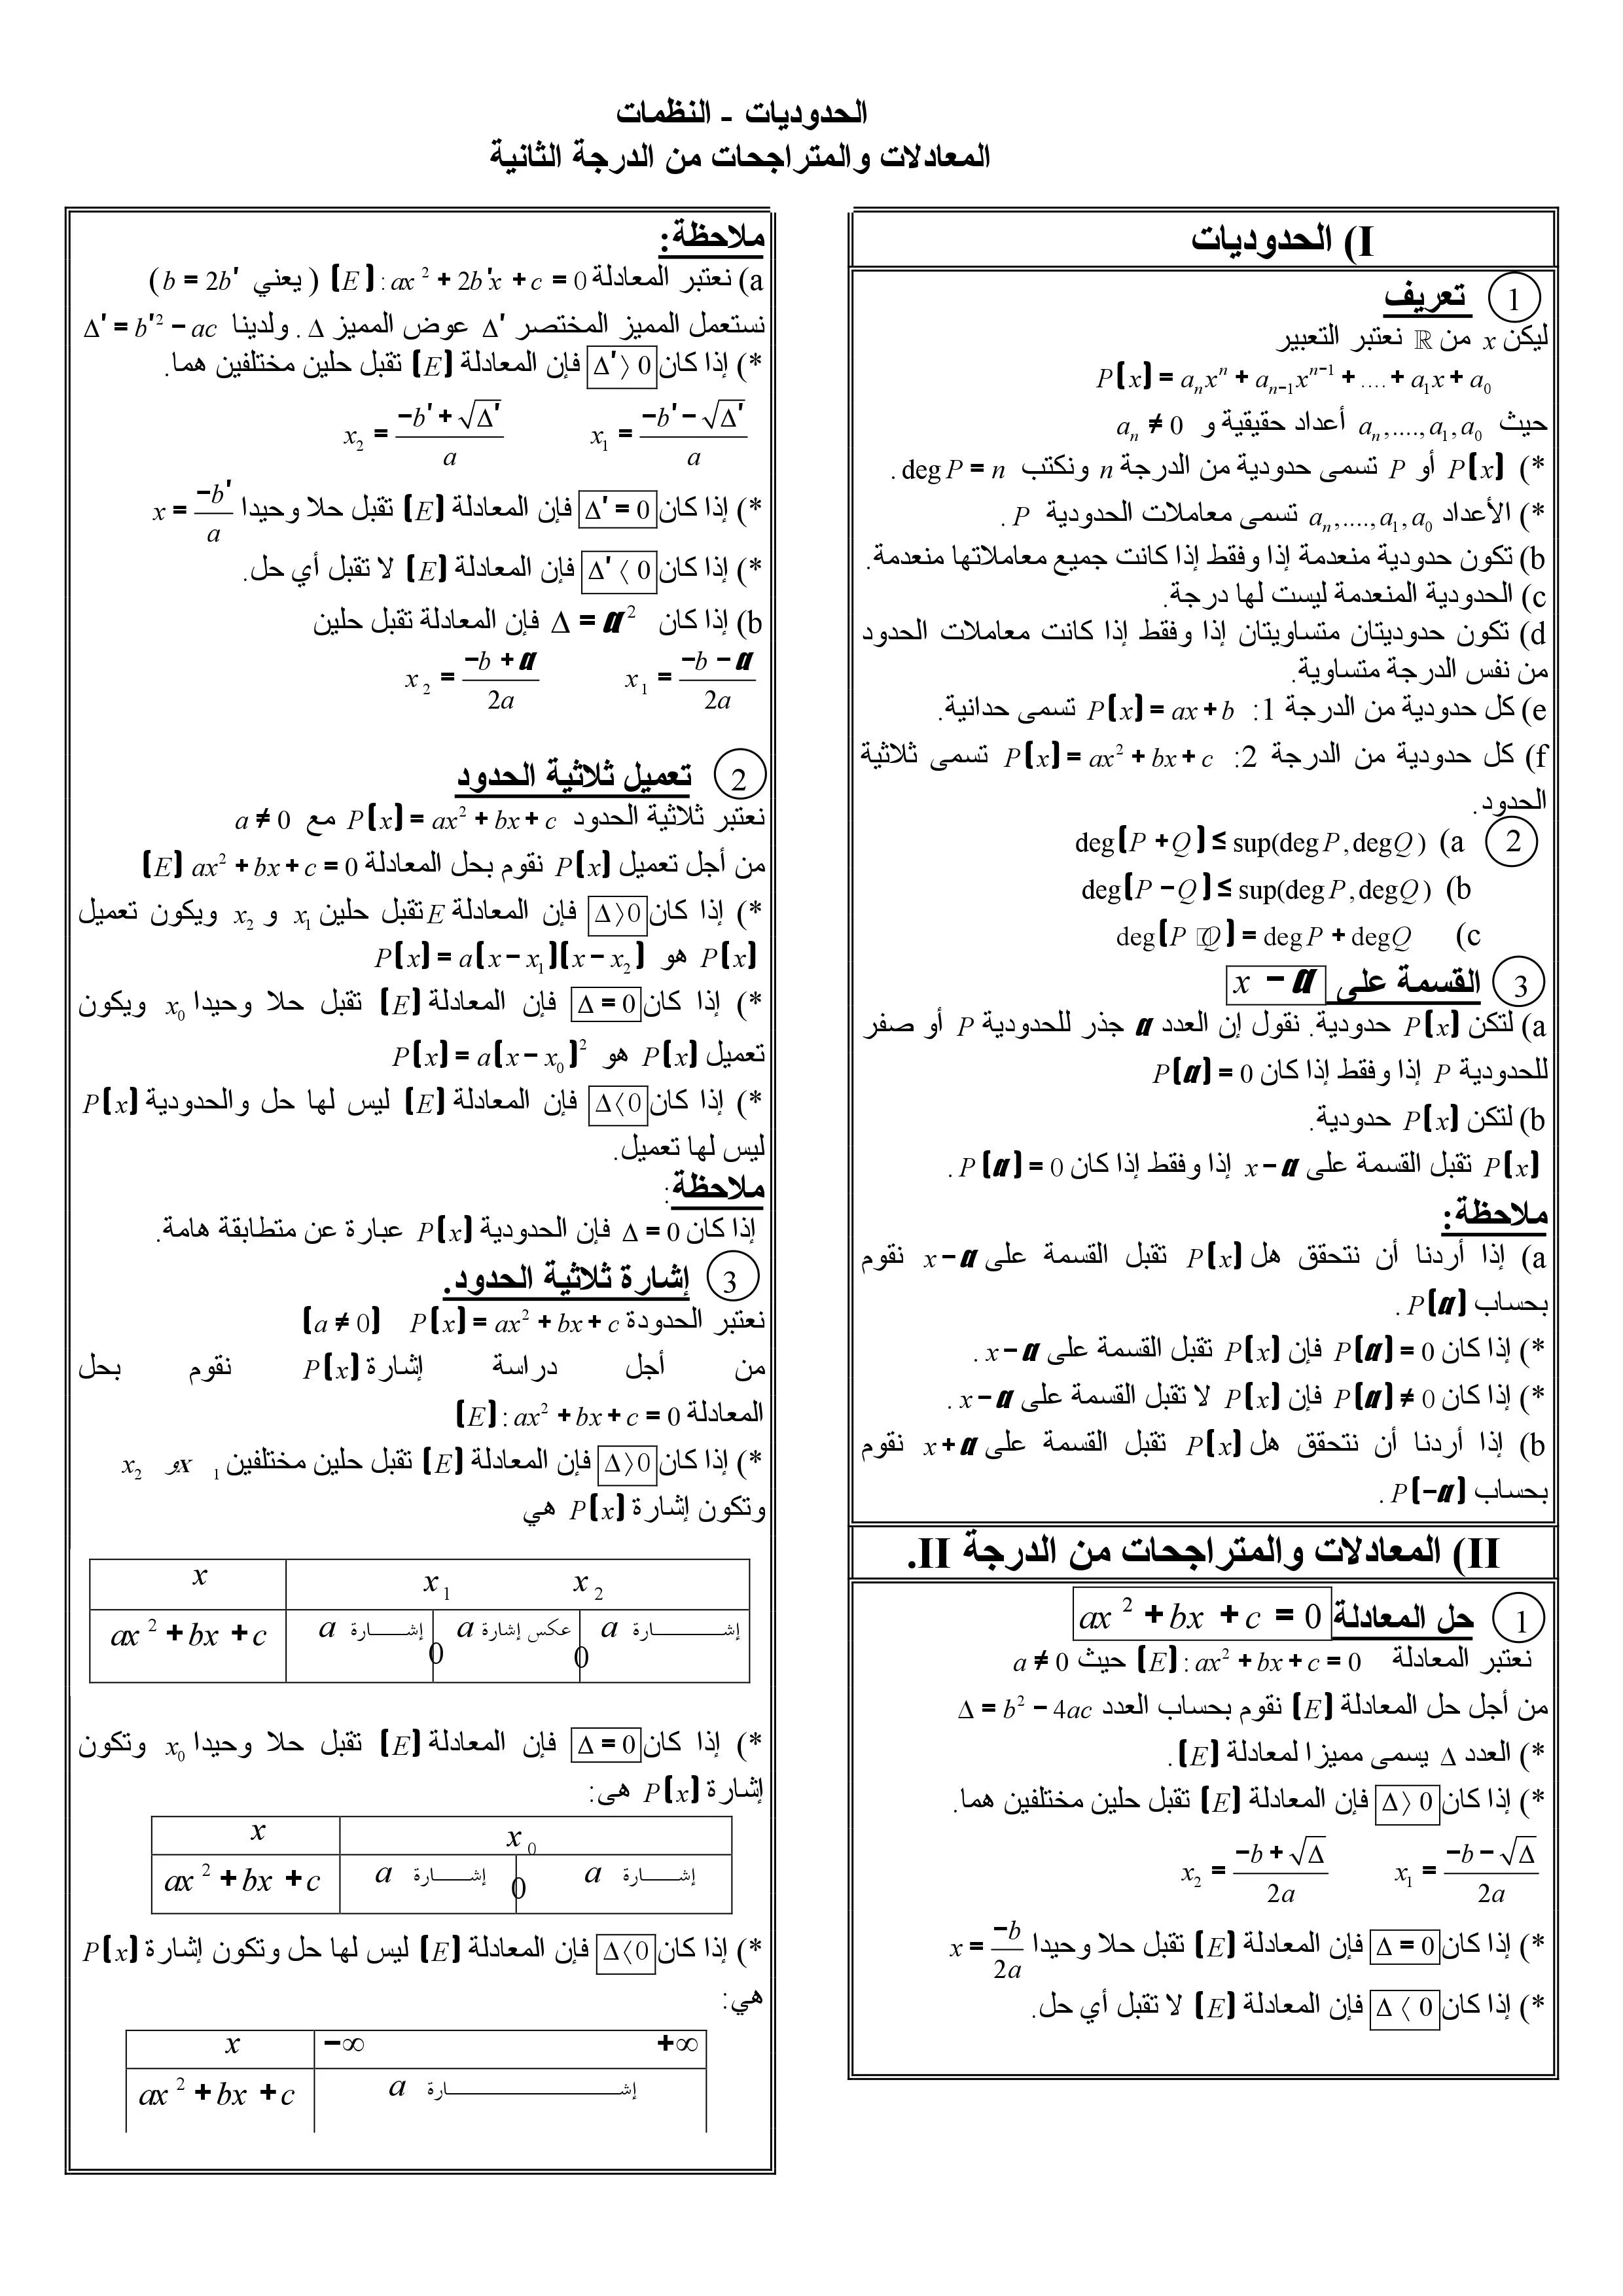 الحدوديات - النظمات
المعادلات والمتراجحات من الدرجة الثانية
I) الحدوديات
1 تعريف
ليكن x من ℝ نعتبر التعبير
P(x) = aₙxⁿ + aₙ₋₁xⁿ⁻¹ + .... + a₁x + a₀
حيث aₙ,....,a₁,a₀ أعداد حقيقية و aₙ ≠ 0
*) P(x) أو P تسمى حدودية من الدرجة n ونكتب deg P = n .
*) الأعداد aₙ,....,a₁,a₀ تسمى معاملات الحدودية P .
b) تكون حدودية منعدمة إذا وفقط إذا كانت جميع معاملاتها منعدمة.
c) الحدودية المنعدمة ليست لها درجة.
d) تكون حدوديتان متساويتان إذا وفقط إذا كانت معاملات الحدود
من نفس الدرجة متساوية.
e) كل حدودية من الدرجة 1: P(x) = ax + b تسمى حدانية.
f) كل حدودية من الدرجة 2: P(x) = ax² + bx + c تسمى ثلاثية
الحدود.
2 a) deg(P + Q) ≤ sup(deg P, deg Q)
b) deg(P − Q) ≤ sup(deg P, deg Q)
c) deg(P Q) = deg P + deg Q
3 القسمة على x − a
a) لتكن P(x) حدودية. نقول إن العدد a جذر للحدودية P أو صفر
للحدودية P إذا وفقط إذا كان P(a) = 0
b) لتكن P(x) حدودية.
P(x) تقبل القسمة على x − a إذا وفقط إذا كان P(a) = 0 .
ملاحظة:
a) إذا أردنا أن نتحقق هل P(x) تقبل القسمة على x − a نقوم
بحساب P(a) .
*) إذا كان P(a) = 0 فإن P(x) تقبل القسمة على x − a .
*) إذا كان P(a) ≠ 0 فإن P(x) لا تقبل القسمة على x − a .
b) إذا أردنا أن نتحقق هل P(x) تقبل القسمة على x + a نقوم
بحساب P(−a) .
II) المعادلات والمتراجحات من الدرجة II.
1 حل المعادلة ax² + bx + c = 0
نعتبر المعادلة (E): ax² + bx + c = 0 حيث a ≠ 0
من أجل حل المعادلة (E) نقوم بحساب العدد Δ = b² − 4ac
*) العدد Δ يسمى مميزا لمعادلة (E) .
*) إذا كان Δ ⟩ 0 فإن المعادلة (E) تقبل حلين مختلفين هما.
x₁ = (−b − √Δ)/2a x₂ = (−b + √Δ)/2a
*) إذا كان Δ = 0 فإن المعادلة (E) تقبل حلا وحيدا x = −b/2a
*) إذا كان Δ ⟨ 0 فإن المعادلة (E) لا تقبل أي حل.
ملاحظة:
a) نعتبر المعادلة (E): ax² + 2b'x + c = 0 ( يعني b = 2b' )
نستعمل المميز المختصر Δ' عوض المميز Δ . ولدينا Δ' = b'² − ac
*) إذا كان Δ' ⟩ 0 فإن المعادلة (E) تقبل حلين مختلفين هما.
x₁ = (−b' − √Δ')/a x₂ = (−b' + √Δ')/a
*) إذا كان Δ' = 0 فإن المعادلة (E) تقبل حلا وحيدا x = −b'/a
*) إذا كان Δ' ⟨ 0 فإن المعادلة (E) لا تقبل أي حل.
b) إذا كان Δ = a² فإن المعادلة تقبل حلين
x₁ = (−b − a)/2a x₂ = (−b + a)/2a
2 تعميل ثلاثية الحدود
نعتبر ثلاثية الحدود P(x) = ax² + bx + c مع a ≠ 0
من أجل تعميل P(x) نقوم بحل المعادلة (E) ax² + bx + c = 0
*) إذا كان Δ⟩0 فإن المعادلة E تقبل حلين x₁ و x₂ ويكون تعميل
P(x) هو P(x) = a(x − x₁)(x − x₂)
*) إذا كان Δ = 0 فإن المعادلة (E) تقبل حلا وحيدا x₀ ويكون
تعميل P(x) هو P(x) = a(x − x₀)²
*) إذا كان Δ⟨0 فإن المعادلة (E) ليس لها حل والحدودية P(x)
ليس لها تعميل.
ملاحظة:
إذا كان Δ = 0 فإن الحدودية P(x) عبارة عن متطابقة هامة.
3 إشارة ثلاثية الحدود.
نعتبر الحدودة P(x) = ax² + bx + c (a ≠ 0)
من أجل دراسة إشارة P(x) نقوم بحل
المعادلة (E): ax² + bx + c = 0
*) إذا كان Δ⟩0 فإن المعادلة (E) تقبل حلين مختلفين x₁ و x₂
وتكون إشارة P(x) هي
x x₁ x₂
ax² + bx + c إشــارة a 0 عكس إشارة a 0 إشــــارة a
*) إذا كان Δ = 0 فإن المعادلة (E) تقبل حلا وحيدا x₀ وتكون
إشارة P(x) هى:
x x₀
ax² + bx + c إشــارة a 0 إشــارة a
*) إذا كان Δ⟨0 فإن المعادلة (E) ليس لها حل وتكون إشارة P(x)
هي:
x −∞ +∞
ax² + bx + c إشــــــــارة a